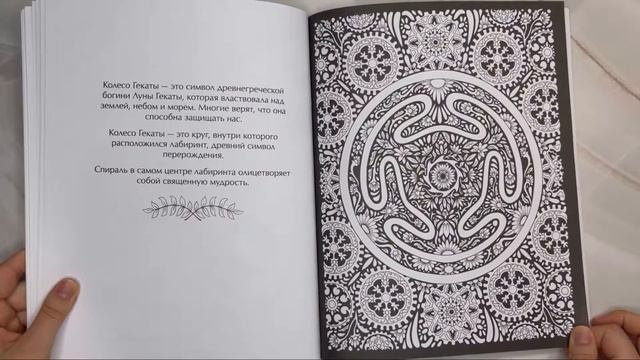 Колесо Гекаты — это символ древнегреческой
богини Луны Гекаты, которая властвовала над
землей, небом и морем. Многие верят, что она
способна защищать нас.
Колесо Гекаты — это круг, внутри которого
расположился лабиринт, древний символ
перерождения.
Спираль в самом центре лабиринта олицетворяет
собой священную мудрость.